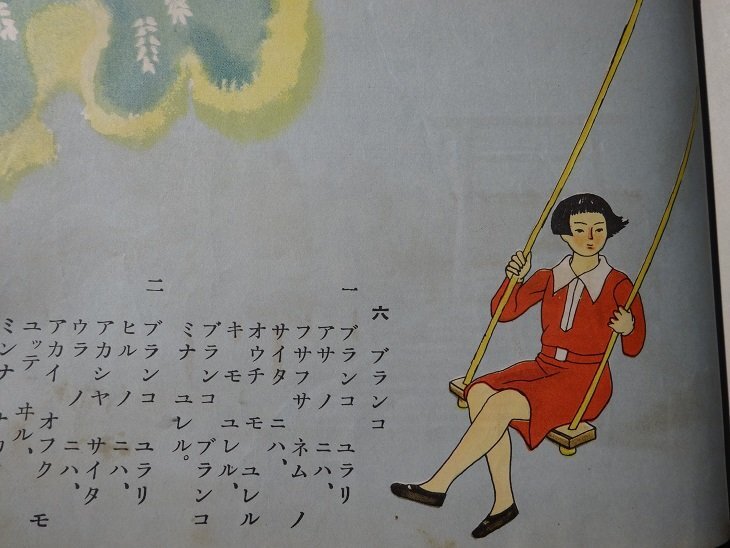 六 ブランコ
一 ブランコ ユラリ
アサ ノ ニハ、
フサフサ ネム ノ
サイタ ニハ、
オウチ モ ユレル
キ モ ユレル、
ブランコ ブランコ
ミナ ユレル。
二 ブランコ ユラリ
ヒル ノ ニハ、
アカシヤ サイタ
ウラ ノ ニハ、
アカイ オフク モ
ユッテ ヰル、
ミンナ